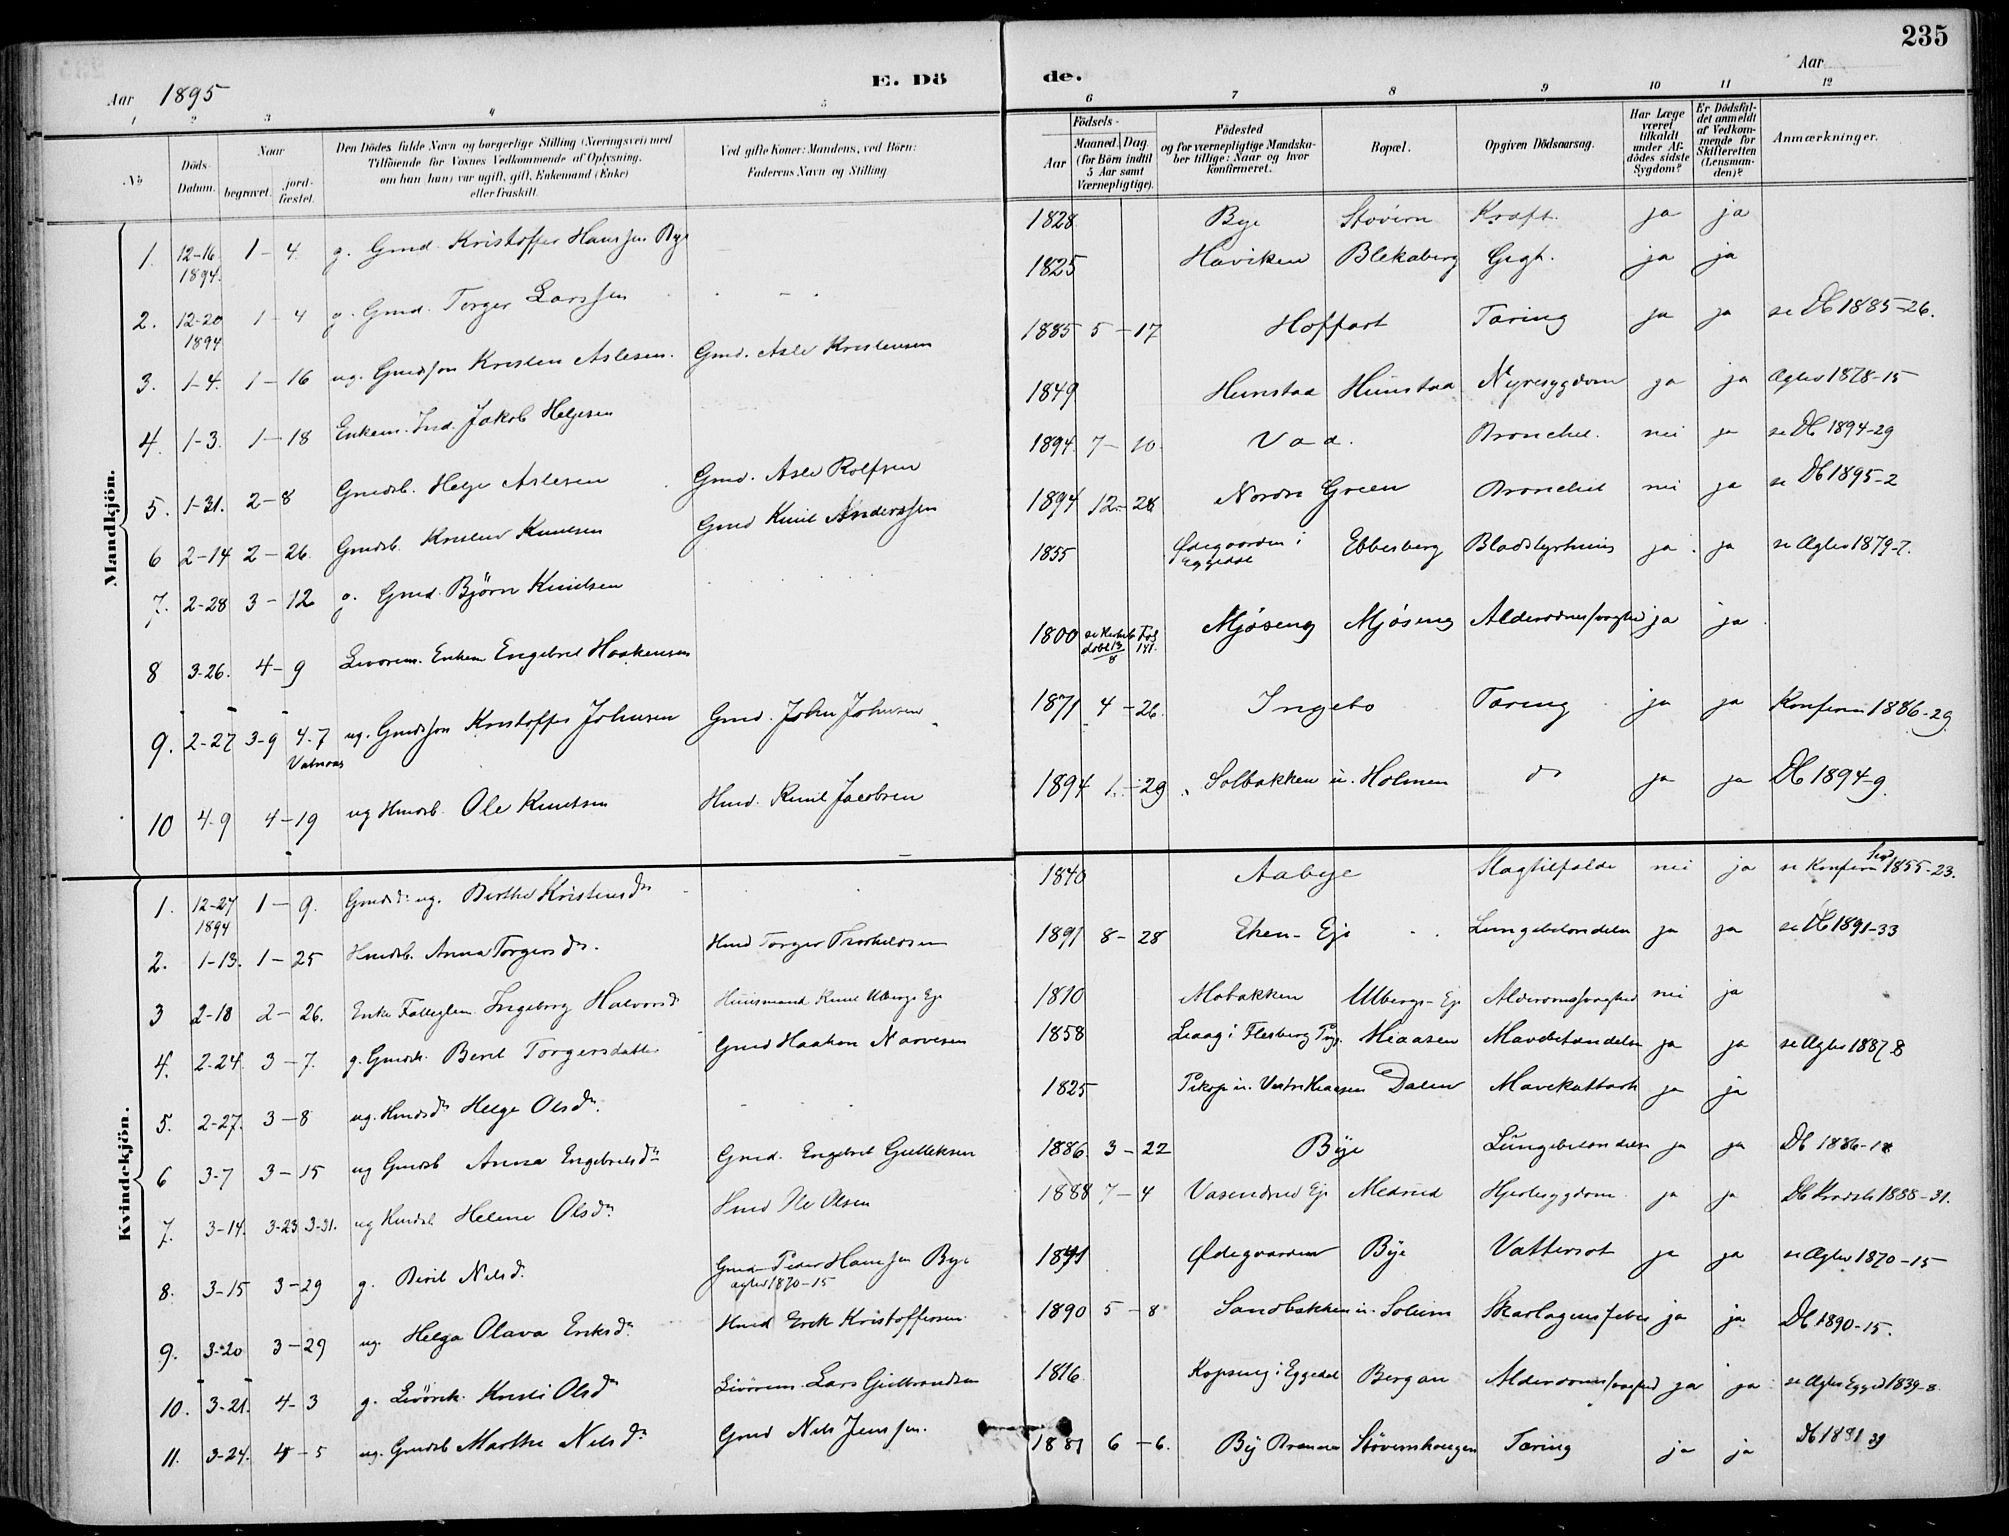 235
Aar 1895
E. Dö
de.
Aar
1 2 3 4 5
6 7 8 9 10 11 12
No
Döds-Datum.
Naar
begravet.
jord-fæstet.
Den Dödes fulde Navn og borgerlige Stilling (Næringsvei) med
Tilföiende for Voxnes Vedkommende af Oplysning,
om han (hun) var ugift, gift, Enkemand (Enke)
eller fraskilt.
Ved gifte Koner: Mandens, ved Börn:
Faderens Navn og Stilling
Födsels-
Aar
Maaned. Dag
(for Börn indtil
5 Aar samt
Værnepligtige).
Födested
og for værnepligtige Mandska-
ber tillige: Naar og hvor
Konfirmeret.
Bopæl.
Opgiven Dödsaarsag.
Har Læge
været
tilkaldt
under Af-
dödes sidste
Sygdom?
Er Dödsfal-
det anmeldt
af Vedkom-
mende for
Skifteretten
(Lensman-
den)?
Anmærkninger.
Mandkjön.
1. 12-16 1894. 1-4. g. Gmd. Kristoffer Hanssen Bye 1828 Bye Stovern Kræft. ja ja
2. 12-20 1894 1-4 g. Gmd. Torger Larssen 1825 Haviken Blekaberg Gigt. ja ja
3. 1-4. 1-16 ug. Gmdsøn Kristen Aslesen. Gmd. Asle Kristensen 1885 5-17 Hoffart Tæring ja ja se Db 1885-26.
4. 1-3. 1-18 Enkem. Ind. Jakob Helgesen 1849 Hunstad Hunstad Nyresygdom ja ja Ægtev 1878-15
5. 1-31. 2-8 Gmdsb. Helge Aslesen Gmd. Asle Rolfsen 1894 7-10. Vad. Bronchit. nei ja se Db 1894-29
6 2-14 2-26. Gmdsb. Kristen Knutsen Gmd Knut Anderssen 1894 12-28 Nordre Green Bronchit nei ja se Db 1895-2
7. 2-28 3-12 g. Gmd. Bjørn Knudsen 1855 Ødegaarden i Eggedal Ebbesberg Blodstyrtning ja ja se Ægtev 1879-7.
8 3-26. 4-9 Livørem. Enkem Engebret Haakensen 1800 Mjøseng Mjøseng Alderdomssvaghed ja ja
9. 2-27 3-9 4-7 ug. Gmdsøn Kristoffer Johnsen Gmd. John Johnsen 1871 4-26. Ingebo Tæring ja ja Konfirm 1886-29
10 4-9 4-19 ug Hmdsb. Ole Knutsen Hmd. Knut Jacobsen 1894 1-29 Solbakken u. Holmen do ja ja Db 1894-9.
Kvindekjön.
1. 12-27 1894 1-9. Gmdsd. ug. Berthe Kristensdr 1840 Aabye Slagtilfælde nei ja se Konfirm 1855-23.
2. 1-13. 1-25 Hmdsb. Anna Torgersdr. Hmd Torger Thorkelssen 1891 8-28 Eken-Eje Lungebetændelse ja ja se Db 1891-33
3 2-18 2-26. Enke Fattiglem. Ingeborg Halvorsdr Huusmand Knut Ulbergs Eje 1810 Mobakken Ulbergs-Eje Alderdomssvaghed nei ja
4. 2-24. 3-7. g. Gmdsk. Berit Torgersdatter Gmd Haakon Narvesen 1858 Laag i Flesberg Pgj. Hiaasen Mavebetændelse ja ja se Ægtev 1887 8
5. 2-27. 3-8 ug. Hmdsdr Helge Olsdr. 1825 Pikop u. Vestre Hiaasen Dalen Mavekattarh ja ja
6 3-7 3-15 ug Gmdsb Anna Engebretsdr Gmd. Engebret Gulleksen 1886. 3-22 Bye Lungebetændelse ja ja Db 1886-18
7. 3-14. 3-23 3-31. ug Hmdsb Helene Olsdr Hmd Ole Olsen 1888 7-4 Vasendrud Eje Medrud Hjertesygdom. ja ja Db Krødsh 1888-31.
8. 3-15 3-29 g. Berit Nilsd. Gmd Peder Hanssen Bye ægtev 1870-15 1841 Ødegaarden Bye Vattersot ja ja se Ægtev 1870-15
9. 3-20 3-29 ug. Helga Olava Eriksdr. Hmd Erik Kristoffersen. 1890 5-8 Sandbakken u. Solum Skarlagensfeber ja ja Db 1890-15.
10. 3-21. 4-3 g. Livørek. Kristi Olsdr Livørem. Lars Gulbrandsen 1816 Kopseng i Eggedal Bergan Alderdomssvaghed ja ja se Ægtev Egged 1839-8
11. 3-24. 4-5 ug. Gmdsb Marthe Nilsdr. Gmd Nils Jenssen. 1881 6-6. By Brenna Støvernhougen Tæring ja ja Db 1881 39